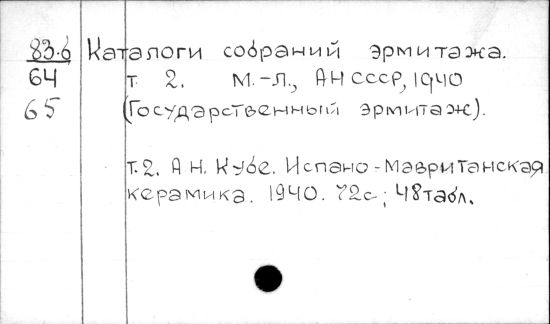 83.б Каталоги собраний эрмитажа.
64 т. 2. м.-л., АН СССР, 1940
65 (Государственный эрмитаж).
т.2. А Н. Кубе. Испано-Мавританская
керамика. 1940. 72с; 48табл.